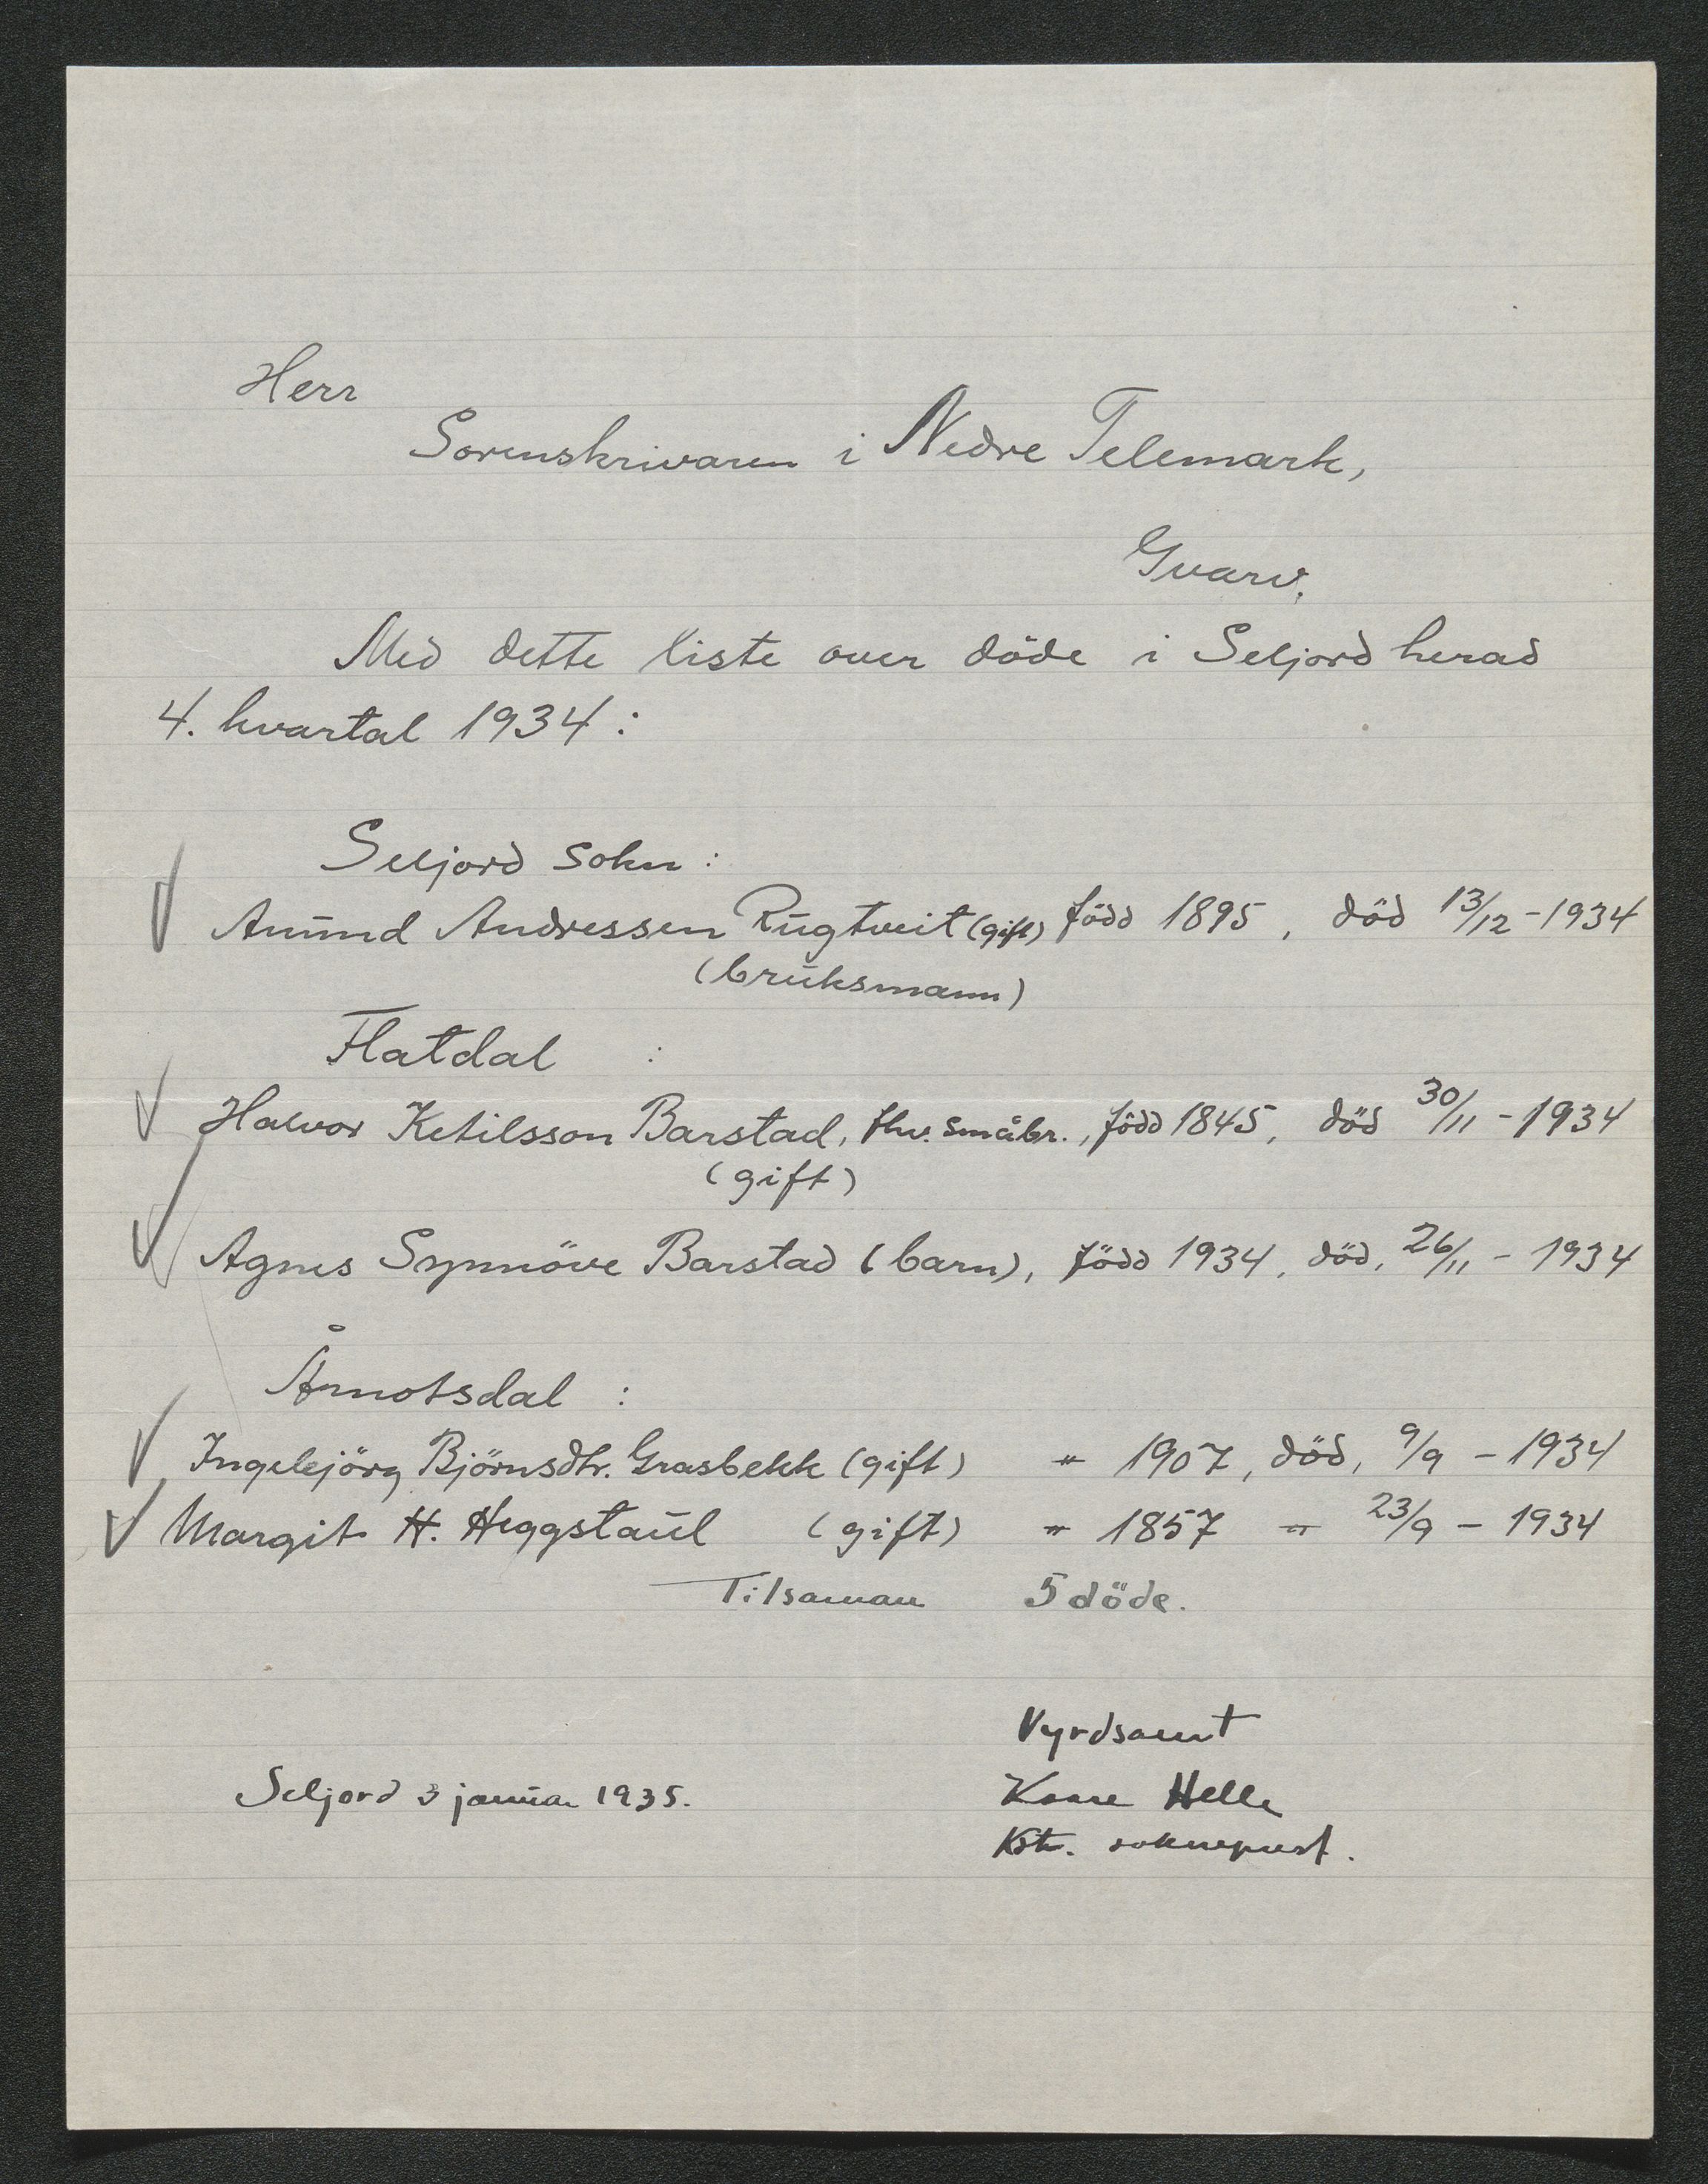 Herr
Sorenskrivaren i Nedre Telemark,
Gvarv.
Med dette liste over döde i Seljord herad
4. kvartal 1934 :
Seljord sokn :
Amund Andressen Rugtveit (gift) född 1895, död 13/12 - 1934
(bruksmann)
Flatdal :
Halvor Ketilsson Barstad, fhv. småbr., född 1845, död 30/11 - 1934
(gift)
Agnes Synnöve Barstad (barn), född 1934, död, 26/11 - 1934
Åmotsdal :
Ingebjörg Björnsdtr. Grasbekk (gift) " 1907, död, 9/9 - 1934
Margit H. Heggstaul (gift) " 1857 " 23/9 - 1934
Tilsaman 5 döde.
Vyrdsamt
Seljord 3 januar 1935.
Kaare Helle
Kst. sokneprest.